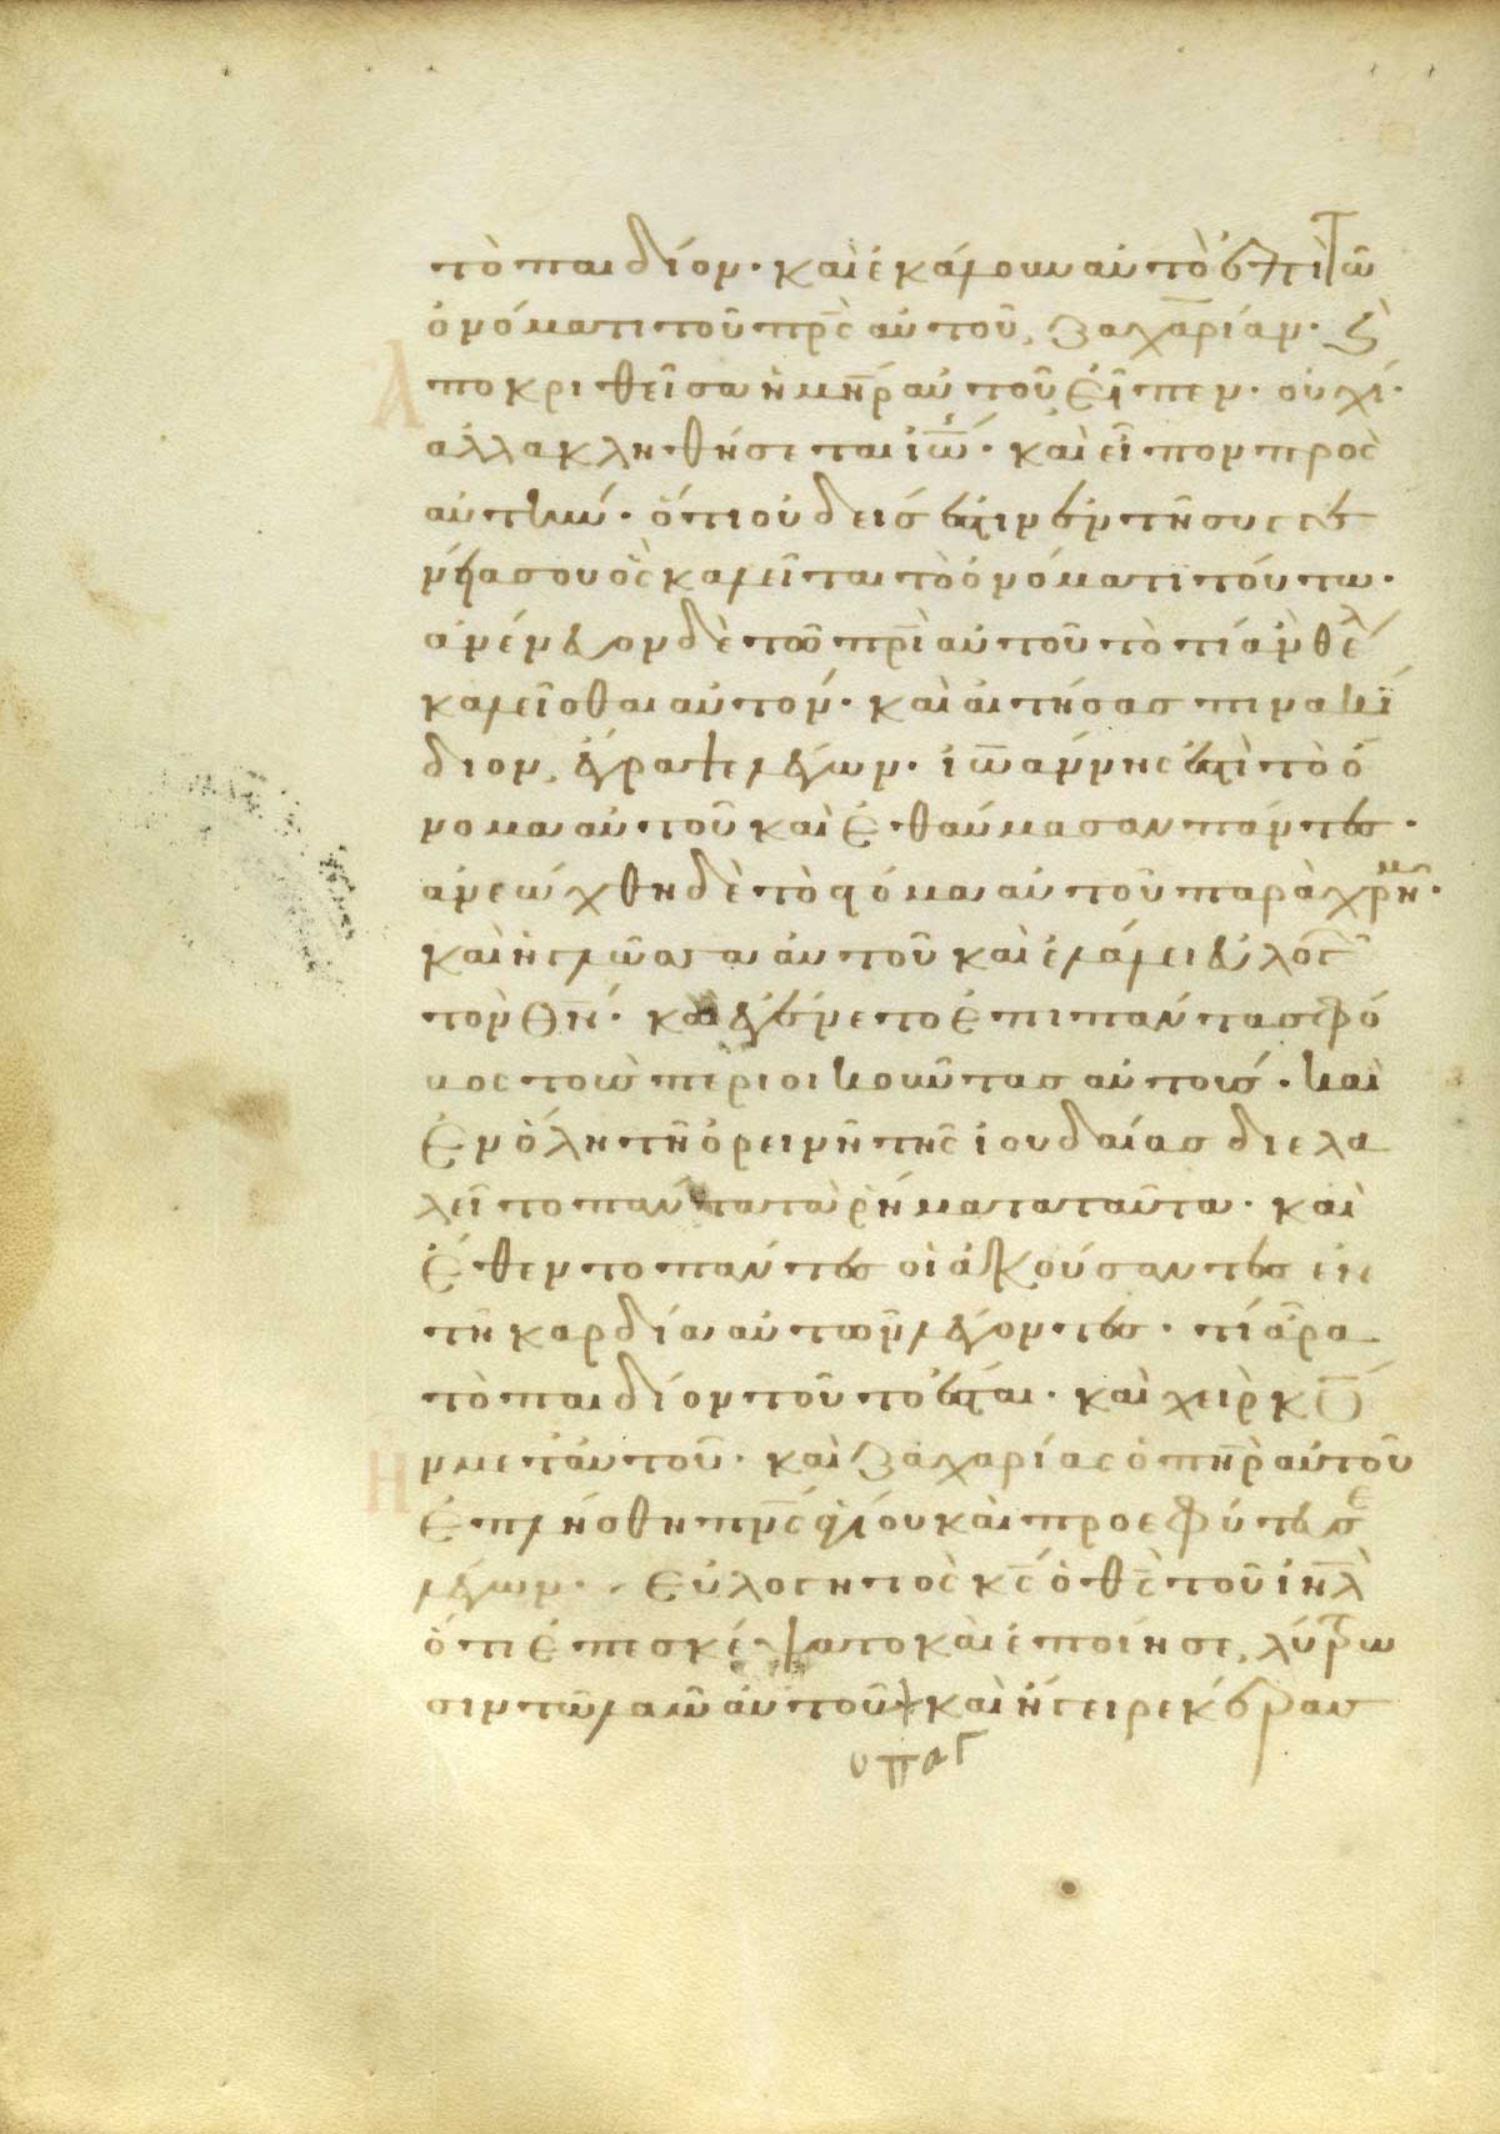 τὸ παιδίον· καὶ ἐκάλουν αὐτὸ ἐπὶ τῶ
ὀνόματι τοῦ πρ̅ς αὐτοῦ, ζαχαρίαν· ϗ
ἀποκριθεῖσα ἡ μη̅ρ αὐτοῦ εἶπεν· οὐχί·
ἀλλα κληθήσεται ἰω̅· καὶ εἶπον πρὸς
αὐτὴν· ὅτι οὐδείς ἐστιν ἐν τῆ συγγε
νεία σου ὃς καλεῖται τὸ ὀνόματι τούτω·
ἀνένευον δὲ τῶ πρ̅ι αὐτοῦ τὸ τί ἀν θέλ
καλεῖσθαι αὐτόν· καὶ αἰτήσας πινακί
διον, ἔγραψε λέγων· ἰω̅άννης ἐστὶ τὸ ὄ
νομα αὐτοῦ καὶ ἐθαύμασαν πάντες·
ἀνεώχθη δὲ τὸ στόμα αὐτοῦ παραχρῆμ·
καὶ ἡ γλῶσσα αὐτοῦ καὶ ἐλάλει εὐλογ
τὸν θν̅· καὶ ἐγένετο ἐπι πάντας φό
βος τοὺς περιοικοῦντας αὐτούς· καὶ
ἐν ὅλη τῆ ὀρεινῆ τῆς ἰουδαίας διελα
λεῖτο πάντα τὰ ῥήματα ταῦτα· καὶ
ἔθεντο πάντες οἱ ἀκούσαντες ἐν
τῆ καρδία αὐτῶν λέγοντες· τί ἄρα
τὸ παιδίον τοῦτο ἔσται· καὶ χεὶρ κυ̅
ἦν μετ᾽ αὐτοῦ· καὶ ζαχαρίας ὁ πη̅ρ αὐτοῦ
ἐπλήσθη πν̅ς ἁγίου καὶ προεφήτευσε
λέγων· εὐλογητὸς κς̅ ὁ θς̅ τοῦ ιη̅λ
ὅτι ἐπεσκέψατο καὶ ἐποίησε, λύτρω
σιν τῶ λαῶ αὐτοῦ καὶ ἤγειρε κέρας
υπαγ